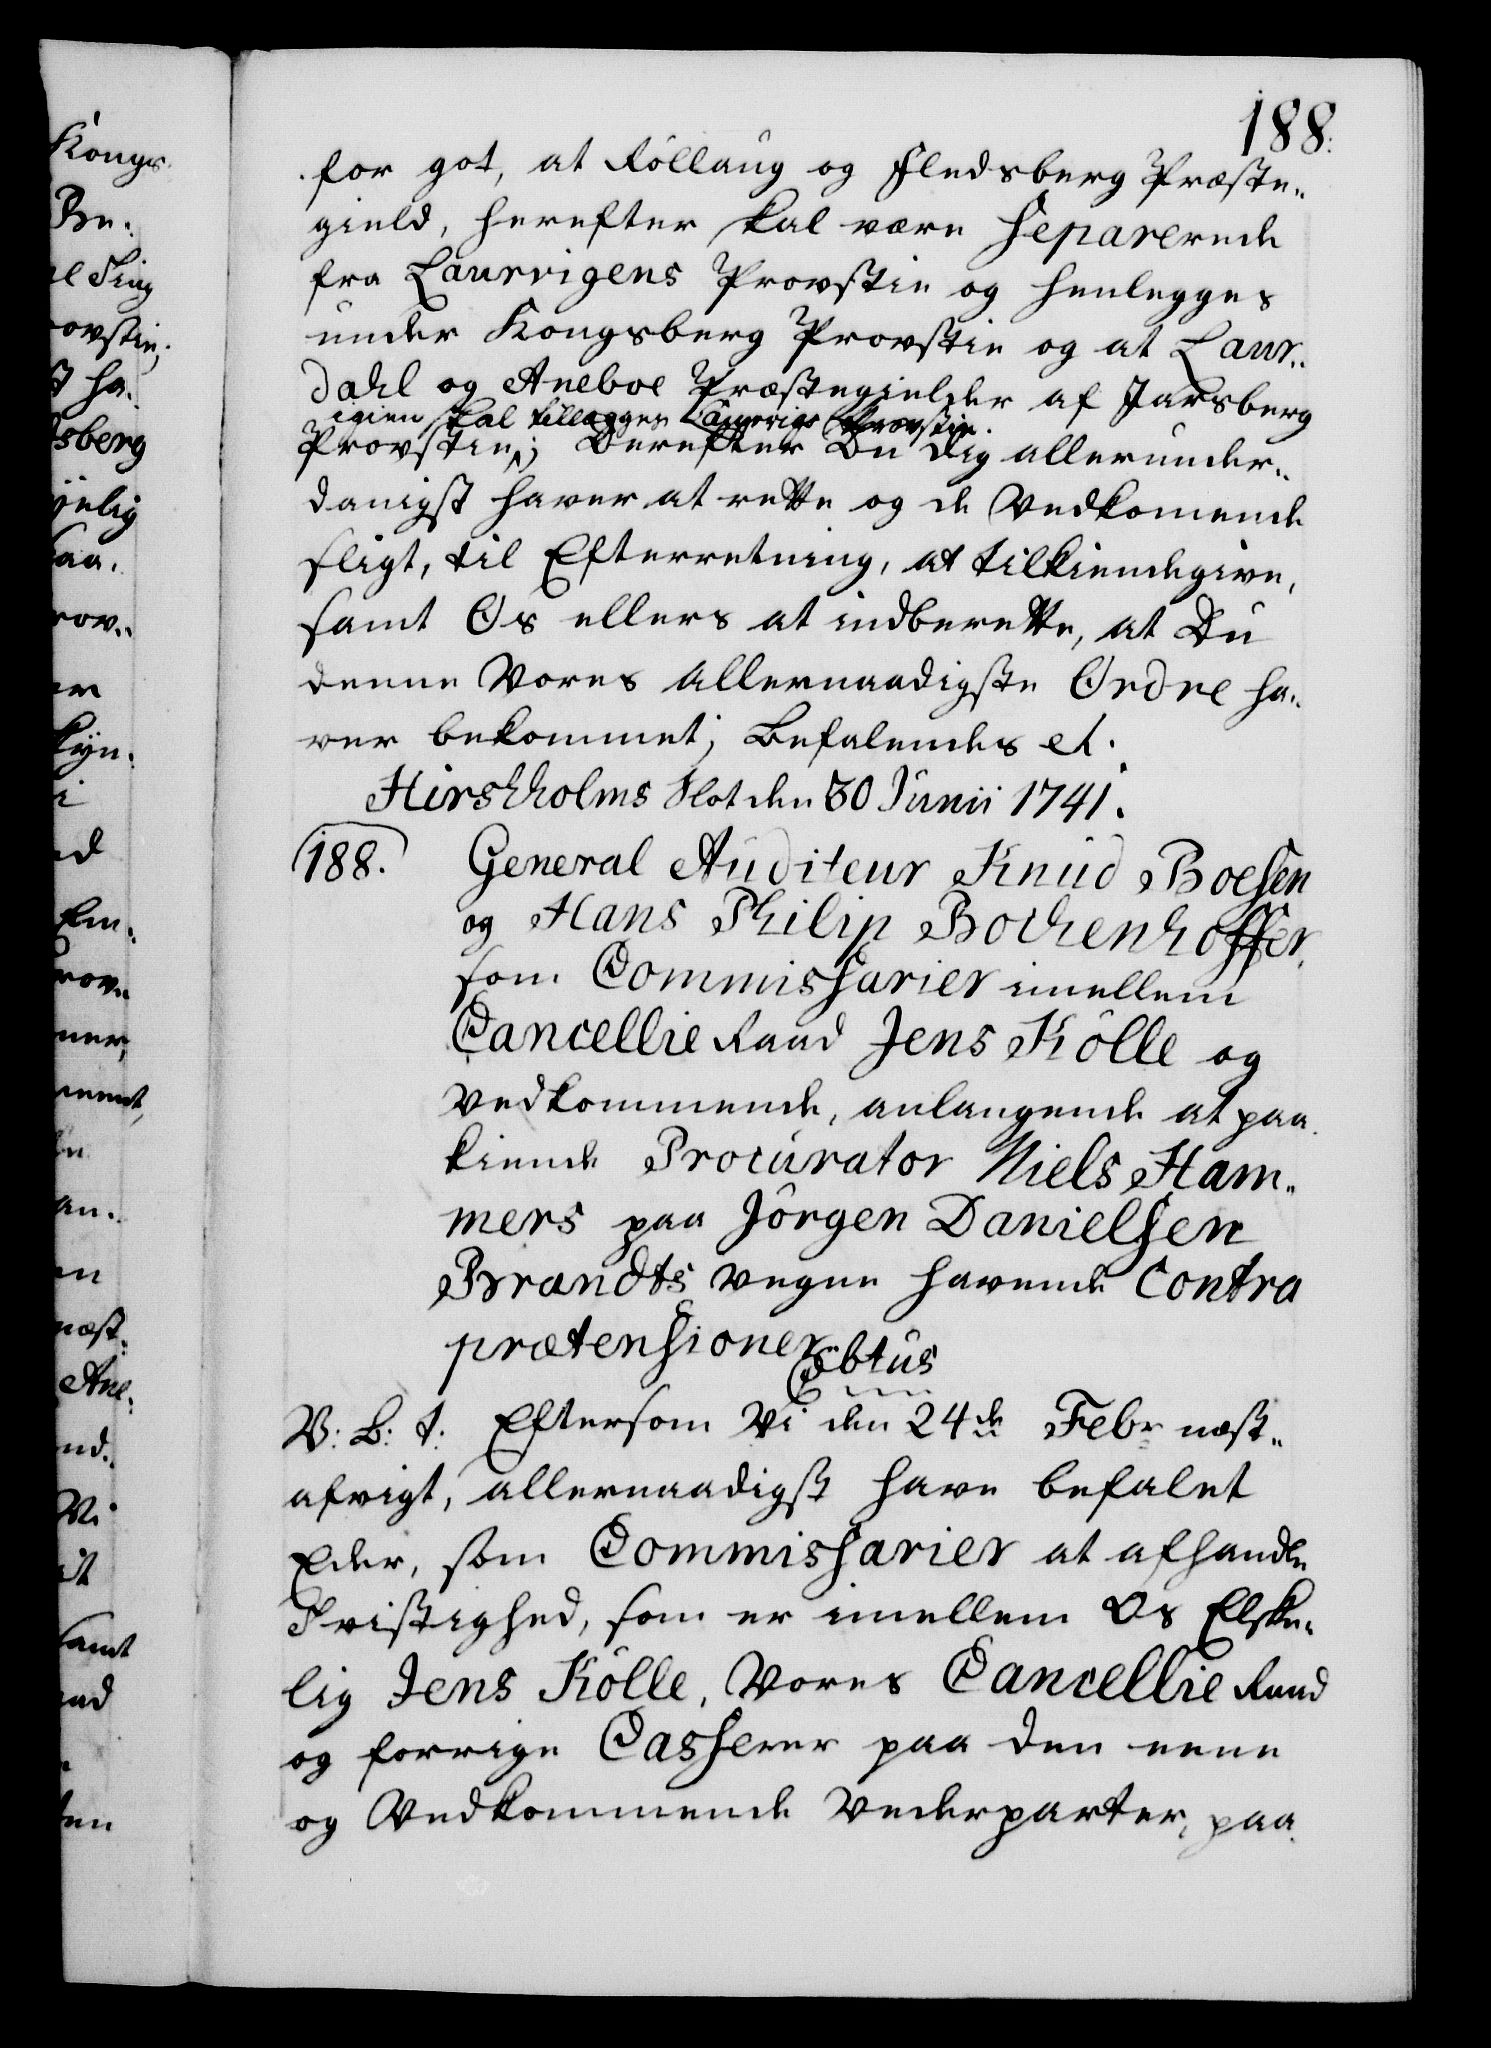 188.
for got, at Rollaug og Fledsberg Præste„
gield, herefter skal være Separerede
fra Laurvigens Provstie og henlegges
under Kongsberg Provstie og at Laur„
dahl og Aneboe Præstegielder af Jarsberg
igien skal tillægges Laurvigs Provstie.
Provstie; Derefter Du dig allerunder„
danigst haver at rette og de Vedkomende
sligt, til Efterretning, at tilkiendegive,
samt Os ellers at indberette, at Du
denne Vores allernaadigste Ordre ha„
ver bekommet; Befalendes et.
Hirshholms Slot den 30 Junii 1741.
188. General Auditeur Knud Boesen
og Hans Philip Bochenhoffer,
som Commissarier imellem
Cancellie Raad Jens Kölle og
Vedkommende, anlangende at paa
kiende Procurator Niels Ham„
mers paa Jörgen Danielsen
Brandts vegne havende Contra
prætensioner
Cbtus
V: B: t: Eftersom Vi den 24de Febr næst„
afvigt, allernaadigst have befalet
Eder, som Commissarier at afhandle
Tvistighed, som er imellem Os Elske„
lig Jens Kölle, Vores Cancellie Raad
og forrige Casserer paa den eene
og Vedkommende Vederparter, paa
Kongs
Be„
el Ting
ovstie;
st ha„
sberg
ijelig
aa.
rov„
er
kijn„
i
ed
Em„
rov„
ner,
ment,
an„
en
næst„
Ane„
nd„
Vi
it
samt
aad
ten